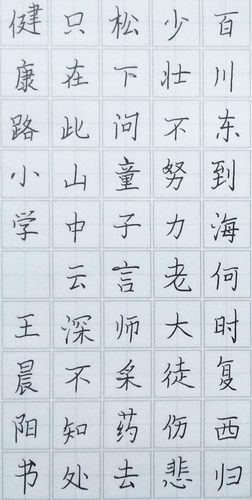 百川东到海何时复西归
少壮不努力老大徒伤悲
松下问童子言师采药去
只在此山中云深不知处
健康路小学 王晨阳书